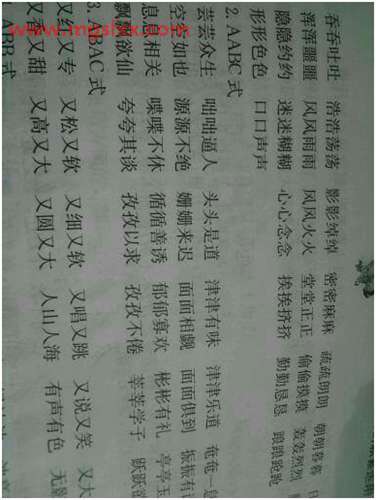 吞吞吐吐 浩浩荡荡 影影绰绰 密密麻麻 疏疏朗朗 朝朝暮暮
浑浑噩噩 风风雨雨 风风火火 堂堂正正 偷偷摸摸 轰轰烈烈
隐隐约约 迷迷糊糊 心心念念 挨挨挤挤 勤勤恳恳 踉踉跄跄
形形色色 口口声声
2. AABC 式
芸芸众生 咄咄逼人 头头是道 津津有味 津津乐道 奄奄一
空空如也 源源不绝 姗姗来迟 面面相觑 面面俱到 振振有
息息相关 喋喋不休 循循善诱 郁郁寡欢 彬彬有礼 亭亭玉
飘飘欲仙 夸夸其谈 孜孜以求 孜孜不倦 莘莘学子 跃跃
3. ABAC 式
又红又专 又松又软 又细又软 又唱又跳 又说又笑 又大
又香又甜 又高又大 又圆又大 人山人海 有声有色 无